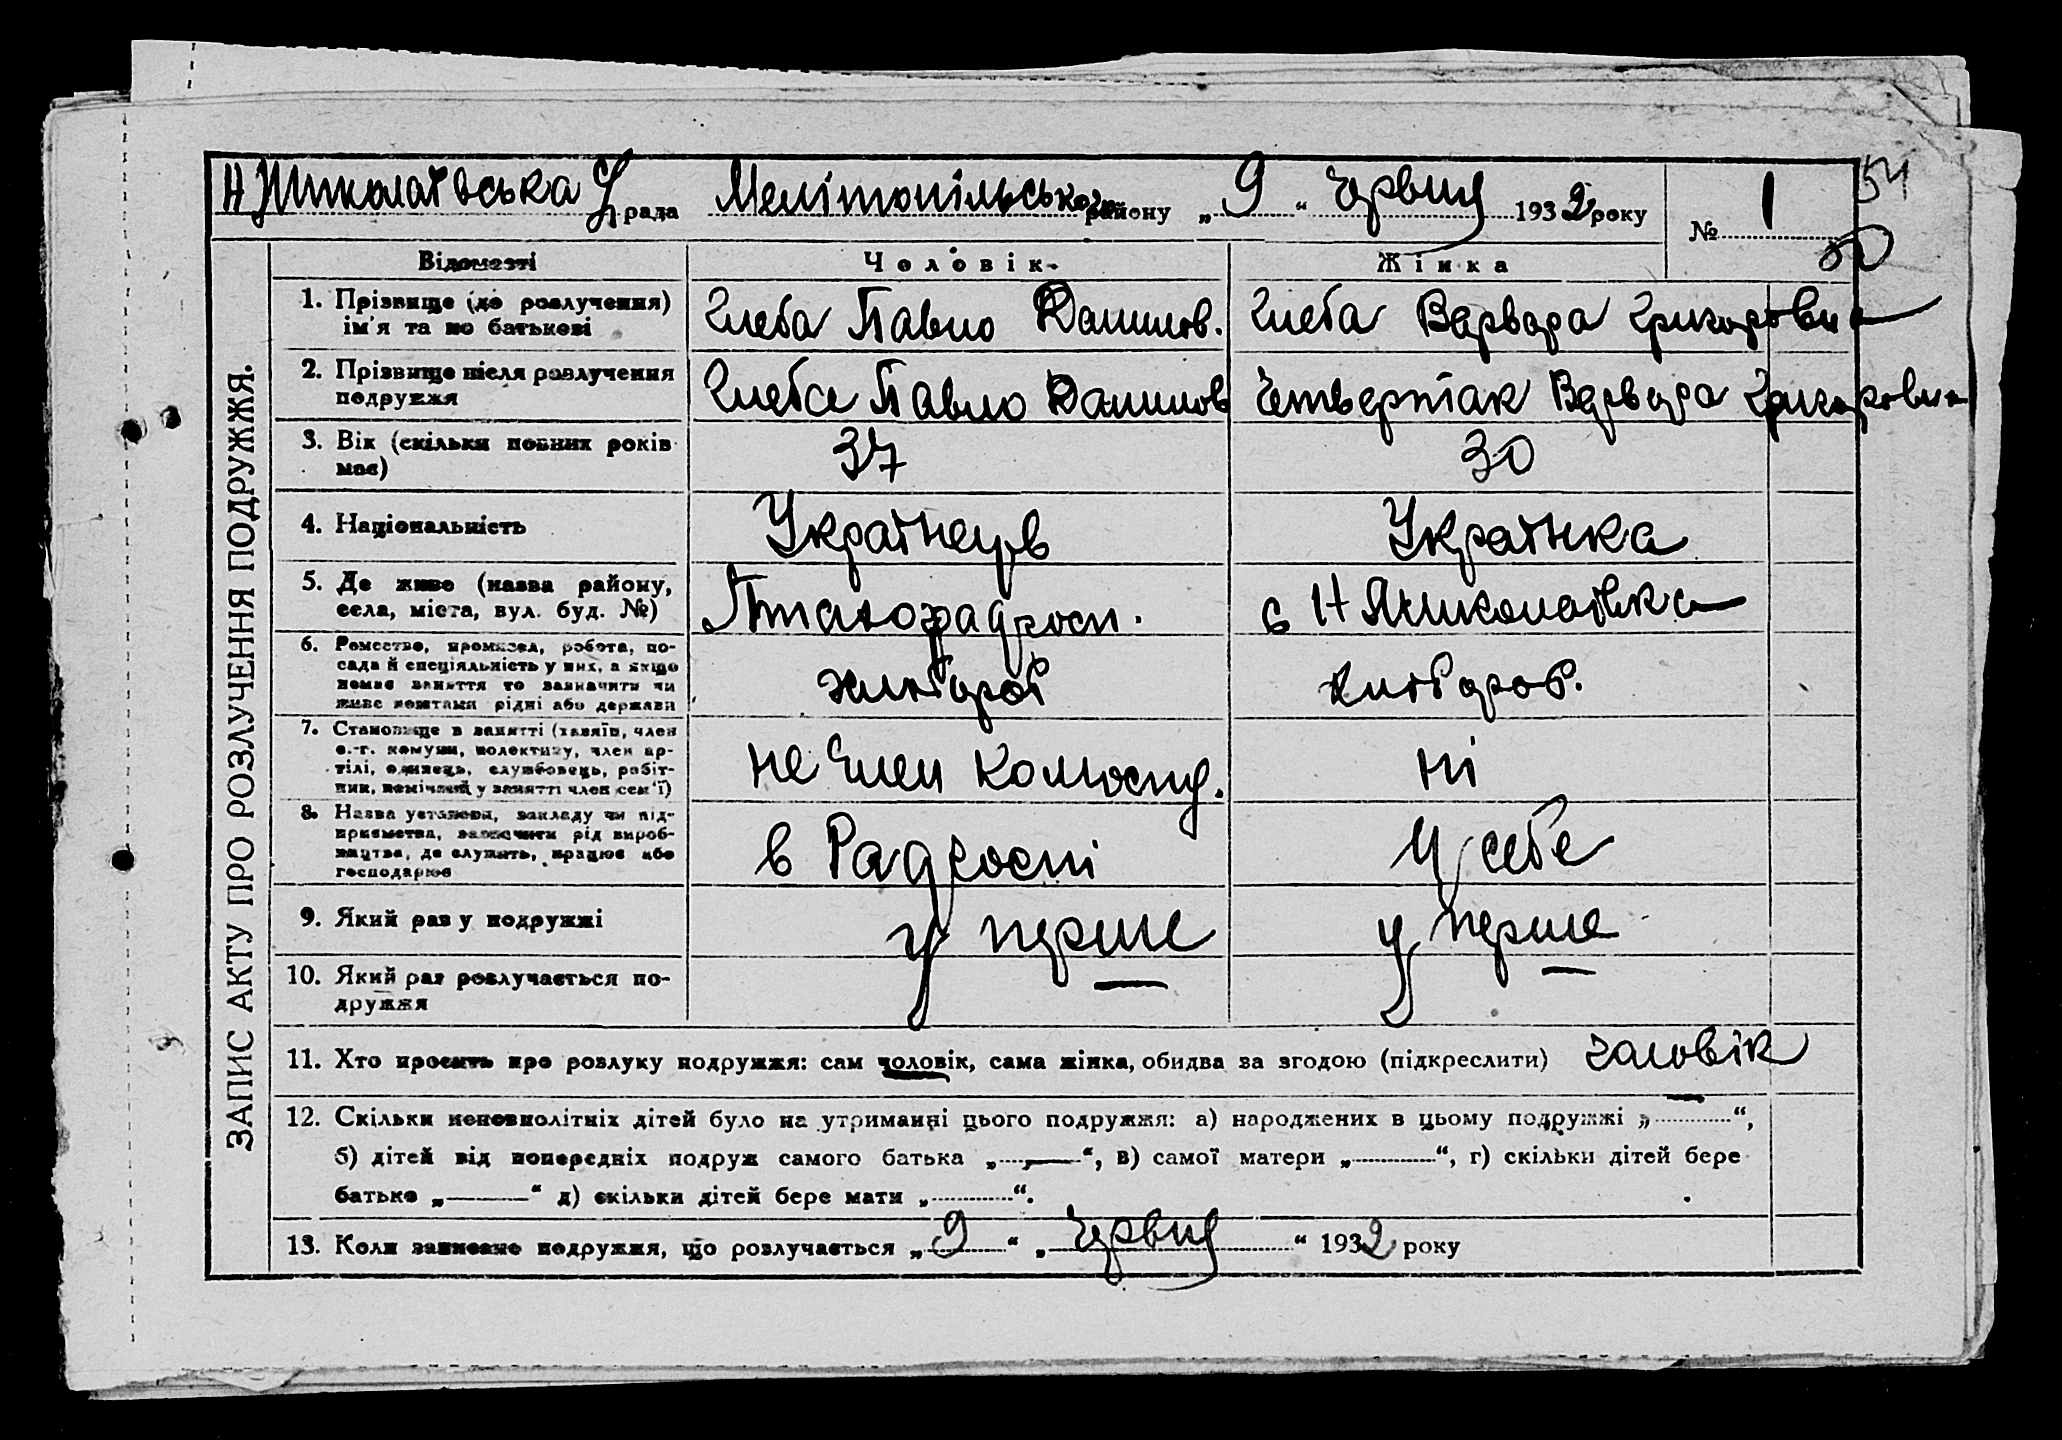 Н Миколаївська С рада Мелітопільського району „ 9 “ Червня 1932 року № 1
54
50
ЗАПИС АКТУ ПРО РОЗЛУЧЕННЯ ПОДРУЖЖЯ.
Відомості Чоловік Жінка
1. Прізвище (до розлучення) ім'я та по батькові Глеба Павло Данилов. Глеба Варвара Григоровна
2. Прізвище після розлучення подружжя Глеба Павло Данилов Четвертак Варвара Григоровна
3. Вік (скільки повних років має) 37 30
4. Національність Українець Українка
5. Де живе (назва району, села, міста, вул. буд. №) Птахорадгосп. с Н Миколаївка
6. Ремество, промисел, робота, посада й спеціяльність у них, а якщо немає заняття то зазначити чи живе коштами рідні або держави хлібороб хлібороб.
7. Становище в занятті (хазяїн, член с.-г. комуни, колективу, член артілі, одинець, службовець, робітник, помічний у занятті член сем'ї) не член колгоспу. ні
8. Назва установи, закладу чи підприємства, зазначити рід виробництва, де служить, працює або господарює в Радгоспі у себе
9. Який раз у подружжі у перше у перше
10. Який раз розлучається подружжя
11. Хто просить про розлуку подружжя: сам чоловік, сама жінка, обидва за згодою (підкреслити) чаловік
12. Скільки неповнолітніх дітей було на утриманні цього подружжя: а) народжених в цьому подружжі „ — “,
б) дітей від попередніх подруж самого батька „ — “, в) самої матери „ “, г) скільки дітей бере
батько „ — “ д) скільки дітей бере мати „ “.
13. Коли записано подружжя, що розлучається „ 9 “ „ Червня “ 1932 року